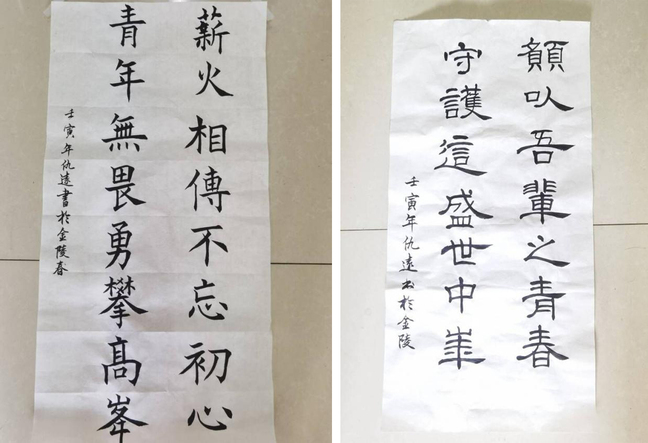 薪火相傳不忘初心
青年無畏勇攀髙峯
壬寅年仇遠書於金陵春
願以吾輩之青春
守護這盛世中華
壬寅年仇遠书於金陵